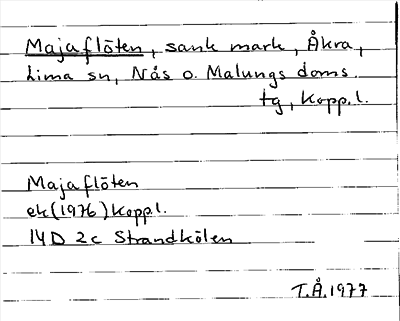 Majaflöten, sank mark, Åkra,
Lima sn, Nås o. Malungs doms.
tg, Koppl.
Majaflöten
ek (1976) Koppl.
14D 2c Strandkölen
T.Å. 1977